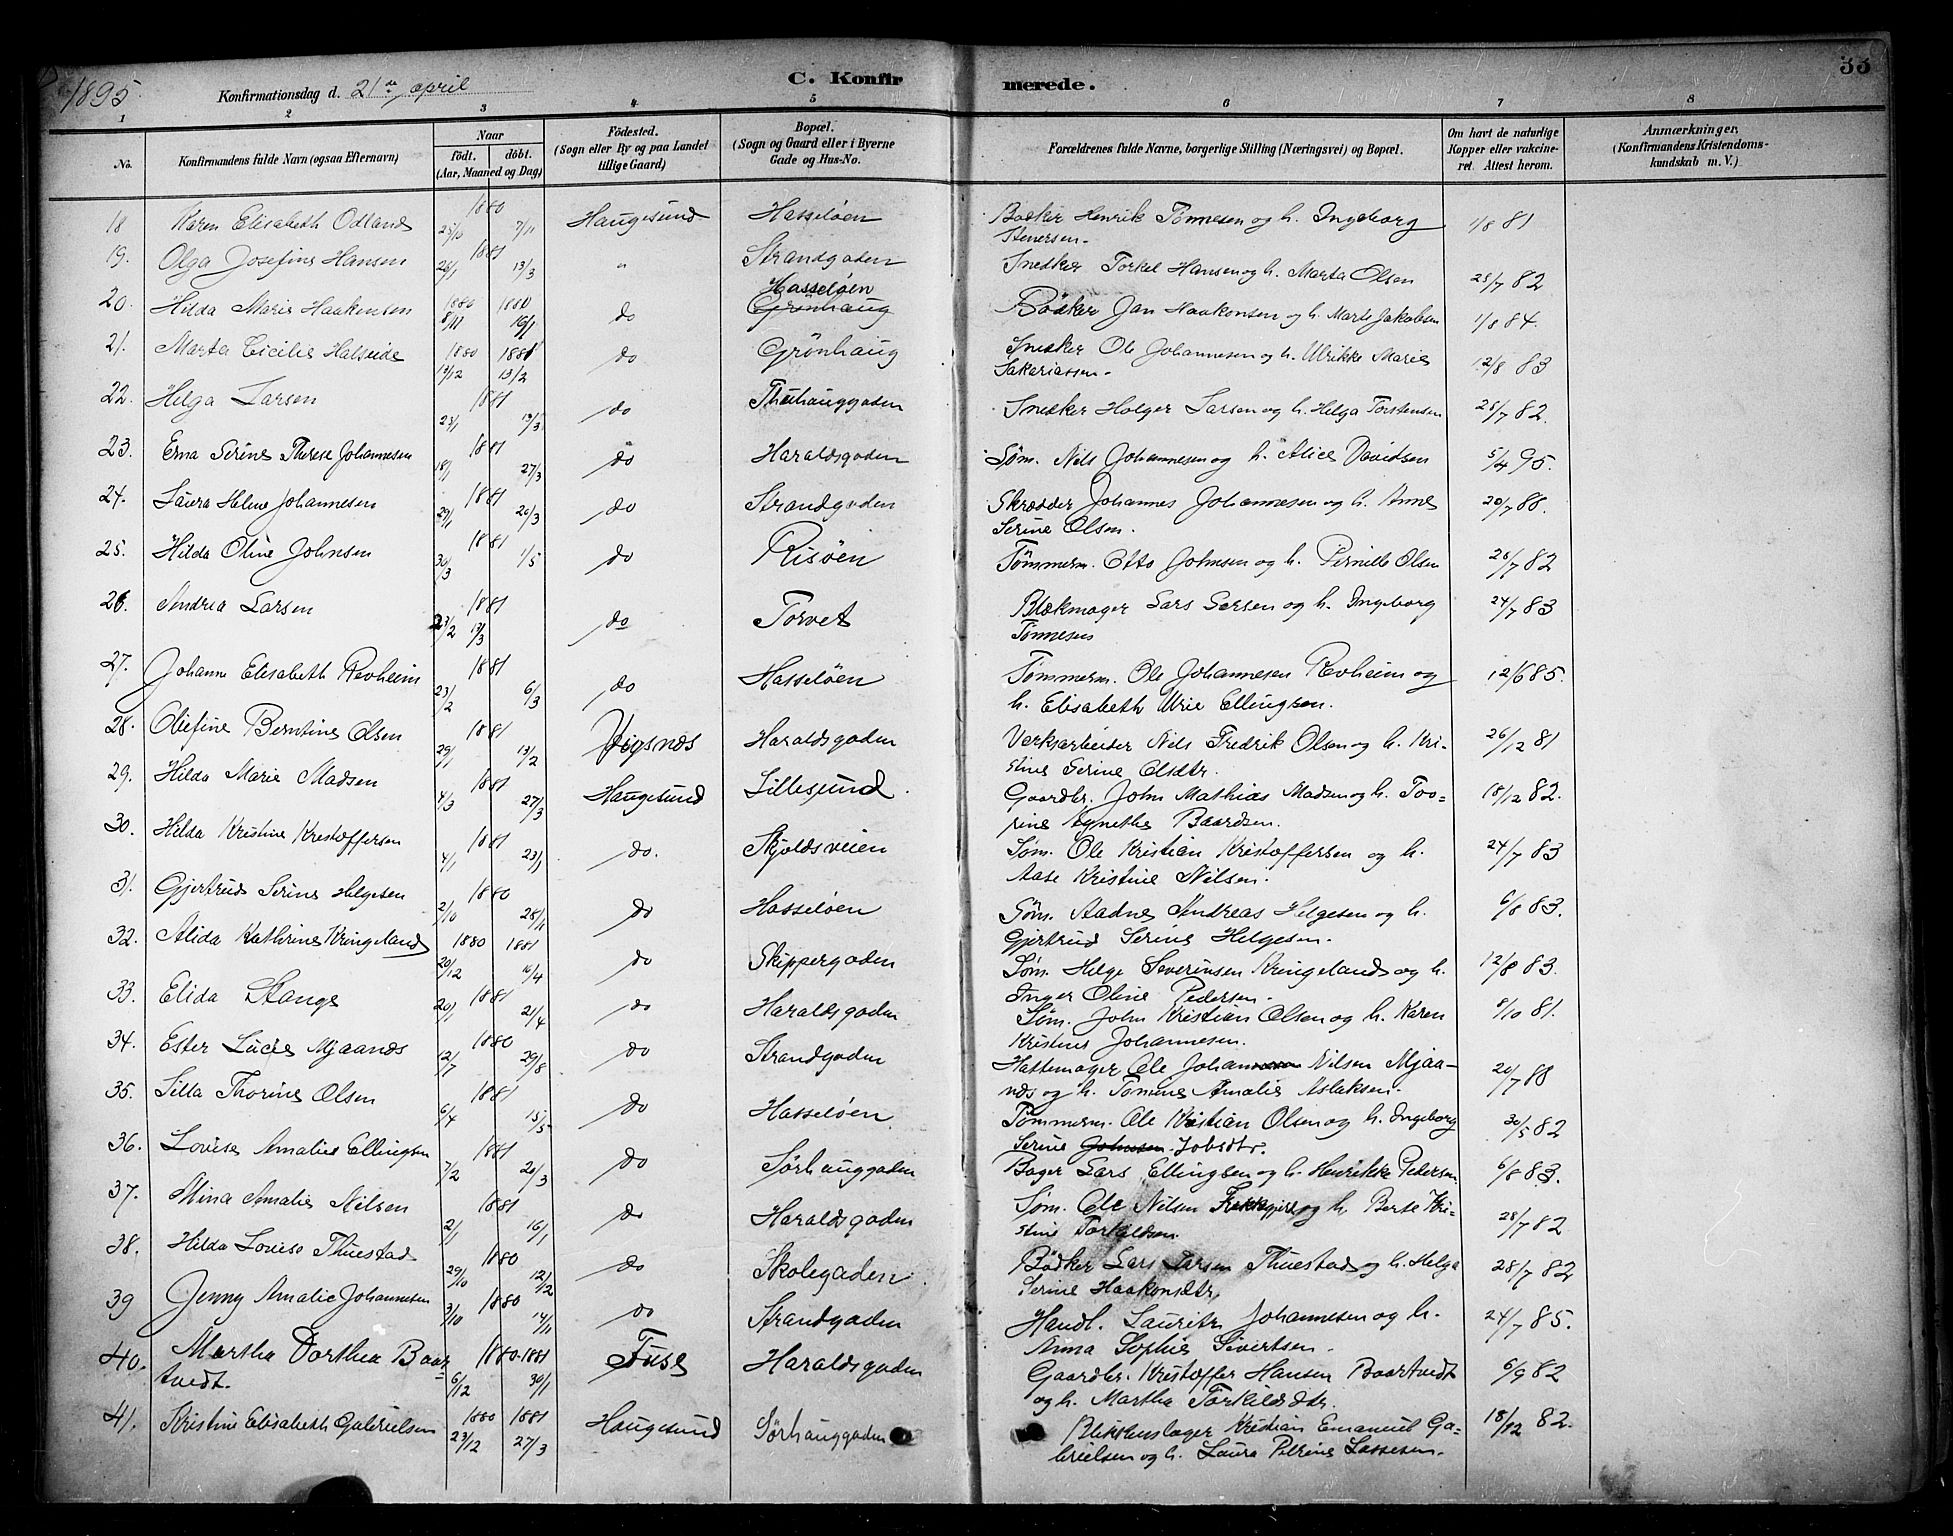 1895
Konfirmationsdag d. 21de april
C. Konfirmerede.
33
1 2 3 4 5 6 7 8
No.
Konfirmandens fulde Navn (ogsaa Efternavn)
Naar
födt. döbt.
(Aar, Maaned og Dag)
Födested.
(Sogn eller By og paa Landet
tillige Gaard.)
Bopæl.
(Sogn og Gaard eller i Byerne
Gade og Hus-No.
Forældrenes fulde Navne, borgerlige Stilling (Næringsvei) og Bopæl.
Om havt de naturlige
Kopper eller vakcine-
ret. Attest herom.
Anmærkninger.
(Konfirmandens Kristendoms-
kundskab m. V.)
18 Karen Elisabeth Odland 1880 25/10 7/11 Haugesund Hasselöen Bödker Henrik Tönnesen og h. Ingeborg 1/8 81
Stenersen.
19. Olga Josefine Hansen 1881 26/1 13/3 " Strandgaden Snedker Torkel Hansen og h. Marta Olsen 25/7 82
20. Hilda Marie Haakensen 1880 8/11 1880 16/1 do Hasselöen Grönhaug Bödker Jan Haakonsen og h. Marte Jakobsen 1/8 84.
21. Marta Cicilie Halseide 1880 19/12 1881 13/2 do Grönhaug Snedker Ole Johannesen og h. Ulrikke Marie 12/8 83
Sakariassen.
22. Helga Larsen 1881 23/1 13/3 do Thuhauggaden Snedker Holger Larsen og h. Helga Torstensen 25/7 82.
23. Erna Serine Therese Johannesen 1881 18/1 27/3 do Haraldsgaden Söm. Nils Johannesen og h. Alice Davidsen 5/4 95.
24. Laura Helene Johannesen 1881 29/1 20/3 do Strandgaden Skrædder Johannes Johannesen og h. Anne 20/7 88.
Serine Olsen.
25. Hilda Oline Johnsen 1881 30/3 1/5 do Risöen Tömmerm. Otto Johnsen og h. Pernille Olsen 26/7 82
26. Andrea Larsen 1881 23/2 13/3 do Torvet Blokmager Lars Larsen og h. Ingeborg 24/7 83
Tönnesen
27. Johanne Elisabeth Revheim 1881 23/2 6/3 do Hasselöen Tömmerm. Ole Johannesen Revheim og 12/6 85.
h. Elisabeth Urie Ellingsen.
28. Oliefine Berntine Olsen 1881 29/1 13/2 Vigsnæs Haraldsgaden Verksarbeider Nils Fredrik Olsen og h. Kri- 26/12 81
stine Serine Olsdtr.
29. Hilda Marie Madsen 1881 4/3 27/3 Haugesund Lillesund Gaardbr. John Mathias Madsen og h. Too- 18/12 82.
rine Agnethe Baardsen.
30. Hilda Kristine Kristoffersen 1881 4/1 23/1 do. Skjoldsveien Söm. Ole Kristian Kristoffersen og h. 24/7 83
Aase Kristine Nilsen.
31. Gjertrud Serine Helgesen 1880 2/10 28/11 do Hasselöen Söm. Aadne Andreas Helgesen og h. 6/8 83.
Gjertrud Serine Helgesen.
32. Alida Kathrine Kringeland 1880 20/12 1881 16/4 do Skippergaden Söm. Helge Severinsen Kringeland og h. 12/8 83.
Inger Oline Pedersen.
33. Elida Stange 1881 20/1 21/4 do Haraldsgaden Söm. John Kristian Olsen og h. Karen 8/10 81.
Kristine Johannesen.
34. Ester Lucie Mjaanæs 1880 12/7 29/8 do Strandgaden Hattemager Ole Johan Nilsen Mjaa- 20/7 88
næs og h. Tomine Amalie Aslaksen.
35. Lilla Thorine Olsen 1881 6/4 15/5 do Hasselöen. Tömmerm. Ole Kristian Olsen og h. Ingeborg 30/5 82
Serine Johnsen. Jobsdtr.
36. Lovise Amalie Ellingsen 1881 7/2 20/3 do Sörhauggaden Bager Lars Ellingsen og h. Henrikke Pedersen 6/8 83.
37. Mina Amalie Nilsen 1881 2/1 16/1 do Haraldsgaden Söm. Ole Nilsen og h Berte Kri- 28/7 82
stine Torkildsen.
38. Hilda Lovise Thuestad 1880 29/10 12/2 do Skolegaden Bödker Lars Larsen Thuestad og h. Helga 28/7 82
Serine Haakonsdtr.
39 Jenny Amalie Johannesen 1880 3/10 14/11 do Strandgaden Handl. Lauritz Johannesen og h. 24/7 85.
Anna Sophie Sivertsen.
40. Martha Dorthea Baar 1880-1881 6/12 30/1 Fuse Haraldsgaden Gaardbr. Kristoffer Hansen Baartvedt 6/9 82
tvedt. og h. Martha Torkildsdtr.
41. Kristine Elisabeth Gabrielsen 1880 23/12 1881 27/3 Haugesund Sörhauggaden Blikkenslager Kristian Emanuel Ga- 18/12 82.
brielsen og h. Laura Petrine Lassesen.